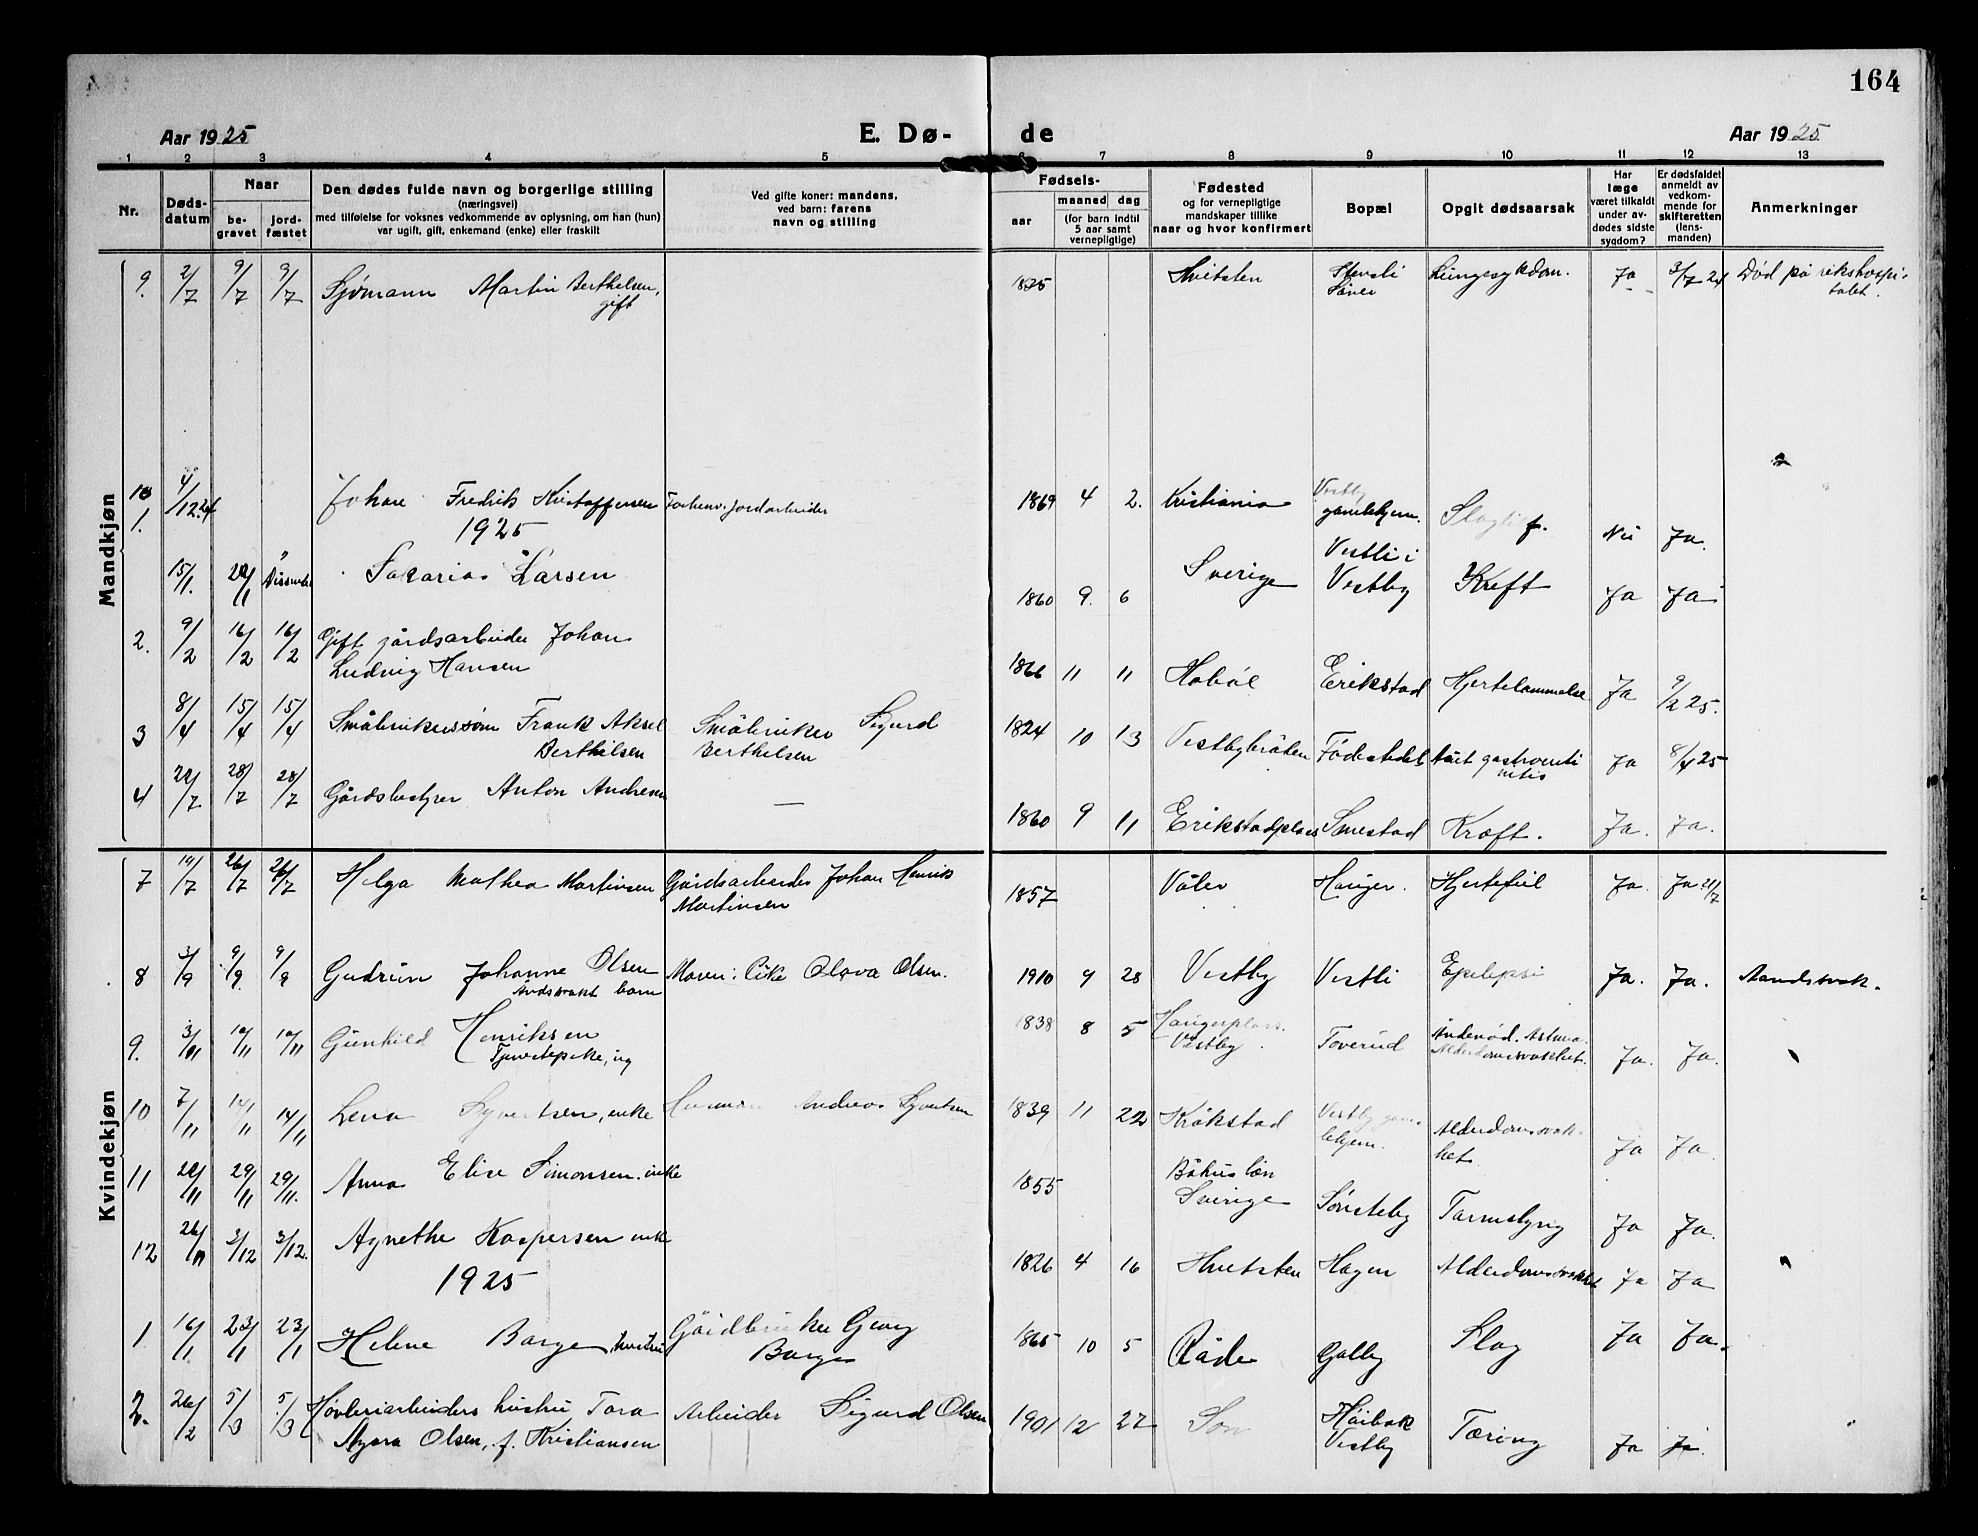 164
Aar 1925
E. Dø-
de
Aar 1925
1 2 3 4 5 6 7 8 9 10 11 12 13
Nr.
Døds-
datum
Naar
be-
gravet
jord-
fæstet
Den dødes fulde navn og borgerlige stilling
(næringsvei)
med tilføielse for voksnes vedkommende av oplysning, om han (hun)
var ugift, gift, enkemand (enke) eller fraskilt
Ved gifte koner: mandens,
ved barn: farens
navn og stilling
Fødsels-
aar
maaned dag
(for barn indtil
5 aar samt
vernepligtige)
Fødested
og for vernepligtige
mandskaper tillike
naar og hvor konfirmert
Bopæl
Opgit dødsaarsak
Har
læge
været tilkaldt
under av-
dødes sidste
sygdom?
Er dødsfaldet
anmeldt av
vedkom-
mende for
skifteretten
(lens-
manden)
Anmerkninger
Mandkjøn
9. 2/7 9/7 9/7 Sjømann Martin Berthelsen, Lungesykdom. Ja 3/7 24 Død på rikshospi-
gift talet.
10 4/12 24 Johan Fredrik Kristoffersen Forhenv. jordarbeider 1869 4 2. Kristiania Vestby
gamlehjem. Nei Ja.
1925
1. 15/1. Sakarias Larsen 1860 9. 6 Sverige Vestli i
Vestby Kreft Ja Ja
2. 9/2 16/2 16/2 Gift gårdsarbeider Johan
Ludvig Hansen 1866 11 11 Hobøl Erikstad Hjertelammelse Ja 9/2 25.
3 8/4 15/4 15/4 Småbrukerssøn Frank Aksel Småbruker Sigurd
Berthelsen Berthelsen 1824 10 13 Vestbybråten Fødestedet Akut gastroenteri
Ja 8/4 25
4 22/7 28/7 28/7 Gårdsbestyrer Anton Andresen — 1860 9 11 Erikstadplass Smestad Kræft. Ja. Ja.
Kvindekjøn
7 19/7 26/7 26/7 Helga Mathea Martinsen Gårdsarbeider Johan Henrik
Martinsen 1857 Våler Hauger. Hjertefeil Ja. Ja 21/7
8 3/9 9/9 9/9 Gudrun Johanne Olsen Moren: Pike Olava Olsen. 1910 9 28 Vestby Vestli Epilepsi Ja. Ja. Aandssvak.
Åndssvakt barn
9. 3/11 10/11 10/11 Gunhild Henriksen 1838 8 5 Haugerplass.
Tjenestepike, ug Vestby. Toverud Åndenød. Astma.
Alderdomssvakhet. Ja. Ja.
10 7/11 14/11 14/11 Lena Syvertsen, enke Andreas Syvertsen 1839 11 22 Kråkstad Vestby gam-
lehjem. Alderdomssvak-
het. Ja Ja.
11 22/11 29/11 29/11. Anna Elise Simonsen. enke 1855 Båhus len
Sverige Sønsteby Tarmslyng Ja Ja.
12 26/11 3/12 3/12. Agnethe Kaspersen enke 1826 4 16 Hvitsten Hagen Alderdomssvakhet Ja Ja
1925
1 16/1 23/1 23/1 Helene Borge, hustru Gårdbruker Georg
Borge 1865 10 5 Råde Galby Slag Ja Ja.
2. 26/2 5/3 5/3 Høvleriarbeiders hustru Tora Arbeider Sigurd Olsen 1901 12 27 Son
Olsen, f. Kristiansen Vestby Tæring Ja Ja.